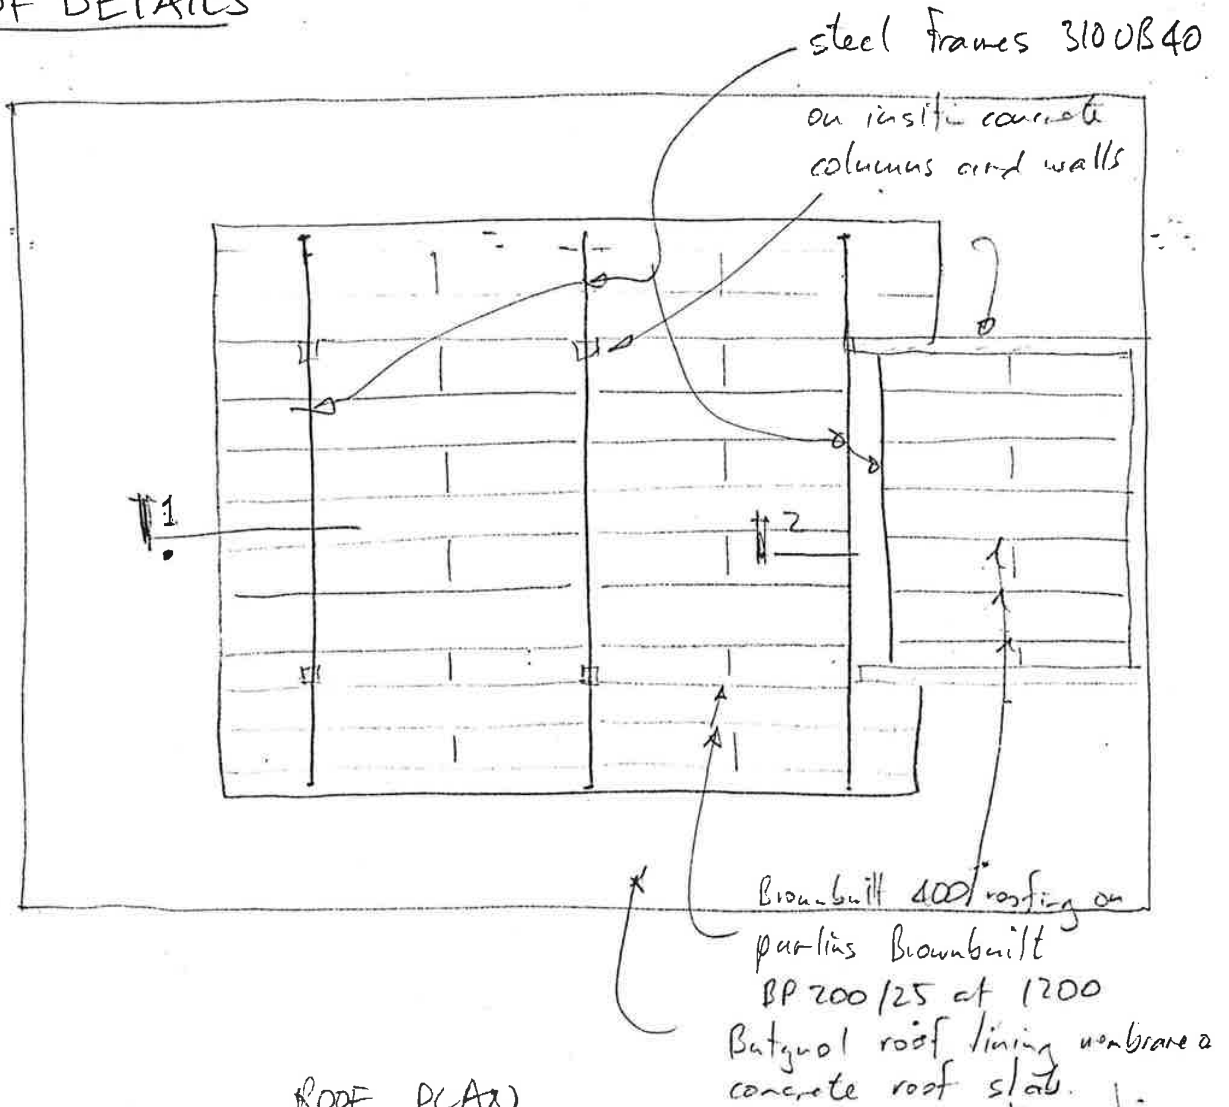 OF DETAILS
steel frames 310UB40
on insitu concrete
columns and walls
1
2
Brownbuilt 400 roofing on
purlins Brownbuilt
BP 200/25 at 1200
Butynol roof lining membrane o
concrete roof slab.
ROOF PLAN